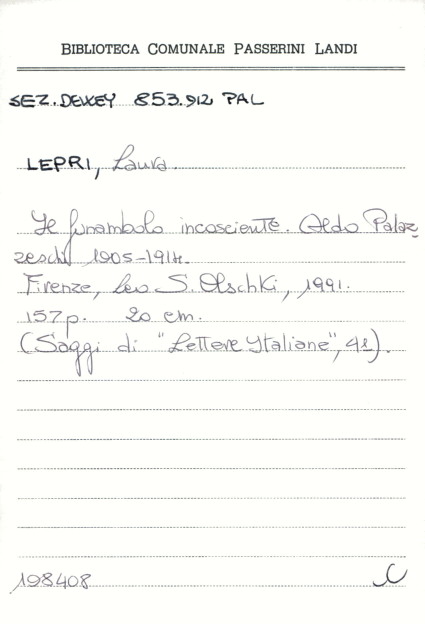 BIBLIOTECA COMUNALE PASSERINI LANDI
SEZ. DEWEY 853.912 PAL
LEPRI, Laura.
Il funambolo incosciente. Aldo Palaz
zeschi 1905-1914.
Firenze, Leo S. Olschki, 1991.
157 p. 20 cm.
(Saggi di "Lettere Italiane", 42).
198408